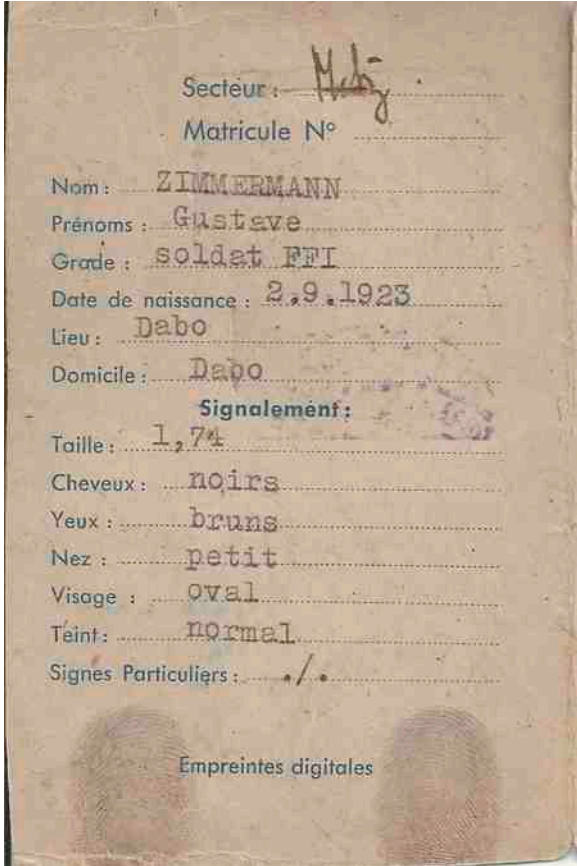 Secteur : Metz
Matricule N°
Nom : ZIMMERMANN
Prénoms : Gustave
Grade : soldat FFI
Date de naissance : 2.9.1923
Lieu : Dabo
Domicile : Dabo
Signalement :
Taille : 1,74
Cheveux : noirs
Yeux : bruns
Nez : petit
Visage : oval
Teint : normal
Signes Particuliers : ./.
Empreintes digitales